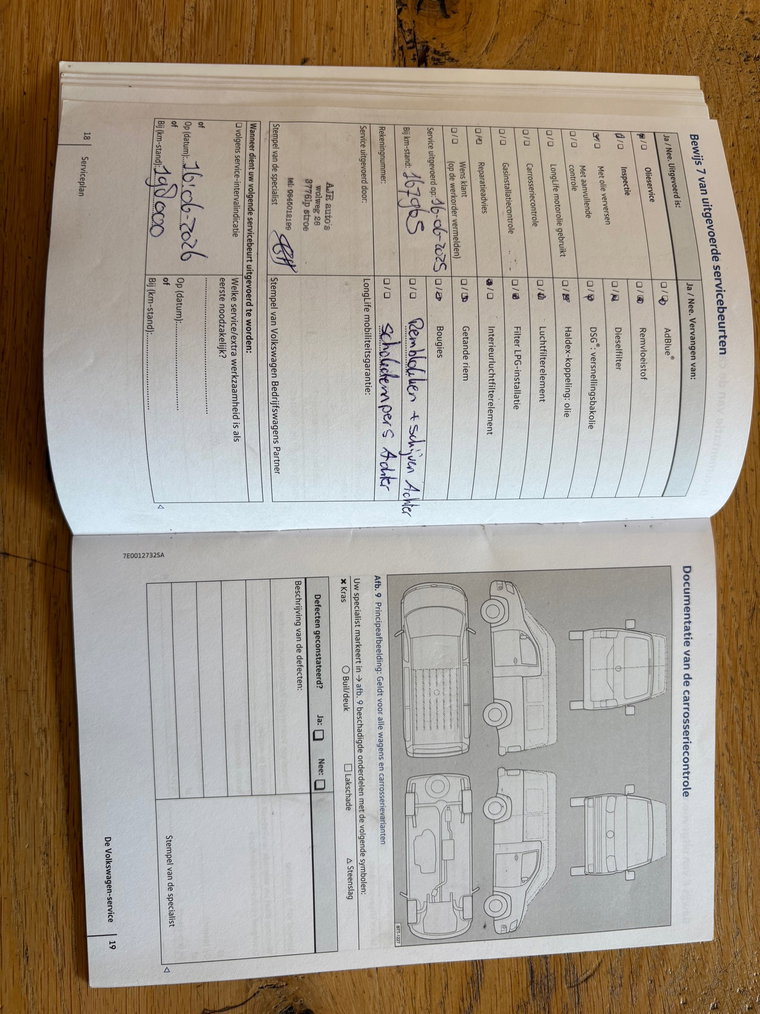 Bewijs 7 van uitgevoerde servicebeurten
Ja / Nee. Uitgevoerd is:
Olieservice
☐/☐ Inspectie
☐/☐ Met olie verversen
☐/☐ Met aanvullende
controle
☐/☐ LongLife motorolie gebruikt
☐/☐ Carrosseriecontrole
☐/☐ Gasinstallatiecontrole
☐/☐ Reparatieadvies
☐/☐ Wens klant
(op de werkorder vermelden)
Service uitgevoerd op: 16-06-2025
Bij km-stand: 167965
Rekeningnummer:
Service uitgevoerd door:
AJR auto's
wolweg 28
3776lp stroe
Stempel van de specialist
Ja / Nee. Vervangen van:
☐/☐ AdBlue®
☐/☐ Remvloeistof
☐/☐ Dieselfilter
☐/☐ DSG®: versnellingsbakolie
☐/☐ Haldex-koppeling: olie
☐/☐ Luchtfilterelement
☐/☐ Filter LPG-installatie
☐/☐ Interieurluchtfilterelement
☐/☐ Getande riem
☐/☐ Bougies
☐/☐ Remblokken + schijven Achter
☐/☐ schokdempers Achter
LongLife mobiliteitsgarantie:
Stempel van Volkswagen Bedrijfswagens Partner
Wanneer dient uw volgende servicebeurt uitgevoerd te worden:
☐ volgens service-intervalindicatie
of
Op (datum): 16-06-2026
of
Bij (km-stand): 198000
Welke service/extra werkzaamheid is als
eerste noodzakelijk?
Op (datum):
of
Bij (km-stand):
18 Serviceplan
7E0012732SA
Documentatie van de carrosseriecontrole
Afb. 9 Principeafbeelding: Geldt voor alle wagens en carrosserievarianten
Uw specialist markeert in → afb. 9 beschadigde onderdelen met de volgende symbolen:
✖ Kras ○ Buil/deuk ☐ Lakschade △ Steenslag
Defecten geconstateerd? Ja: ☐ Nee: ☐
Beschrijving van de defecten:
Stempel van de specialist
De Volkswagen-service 19